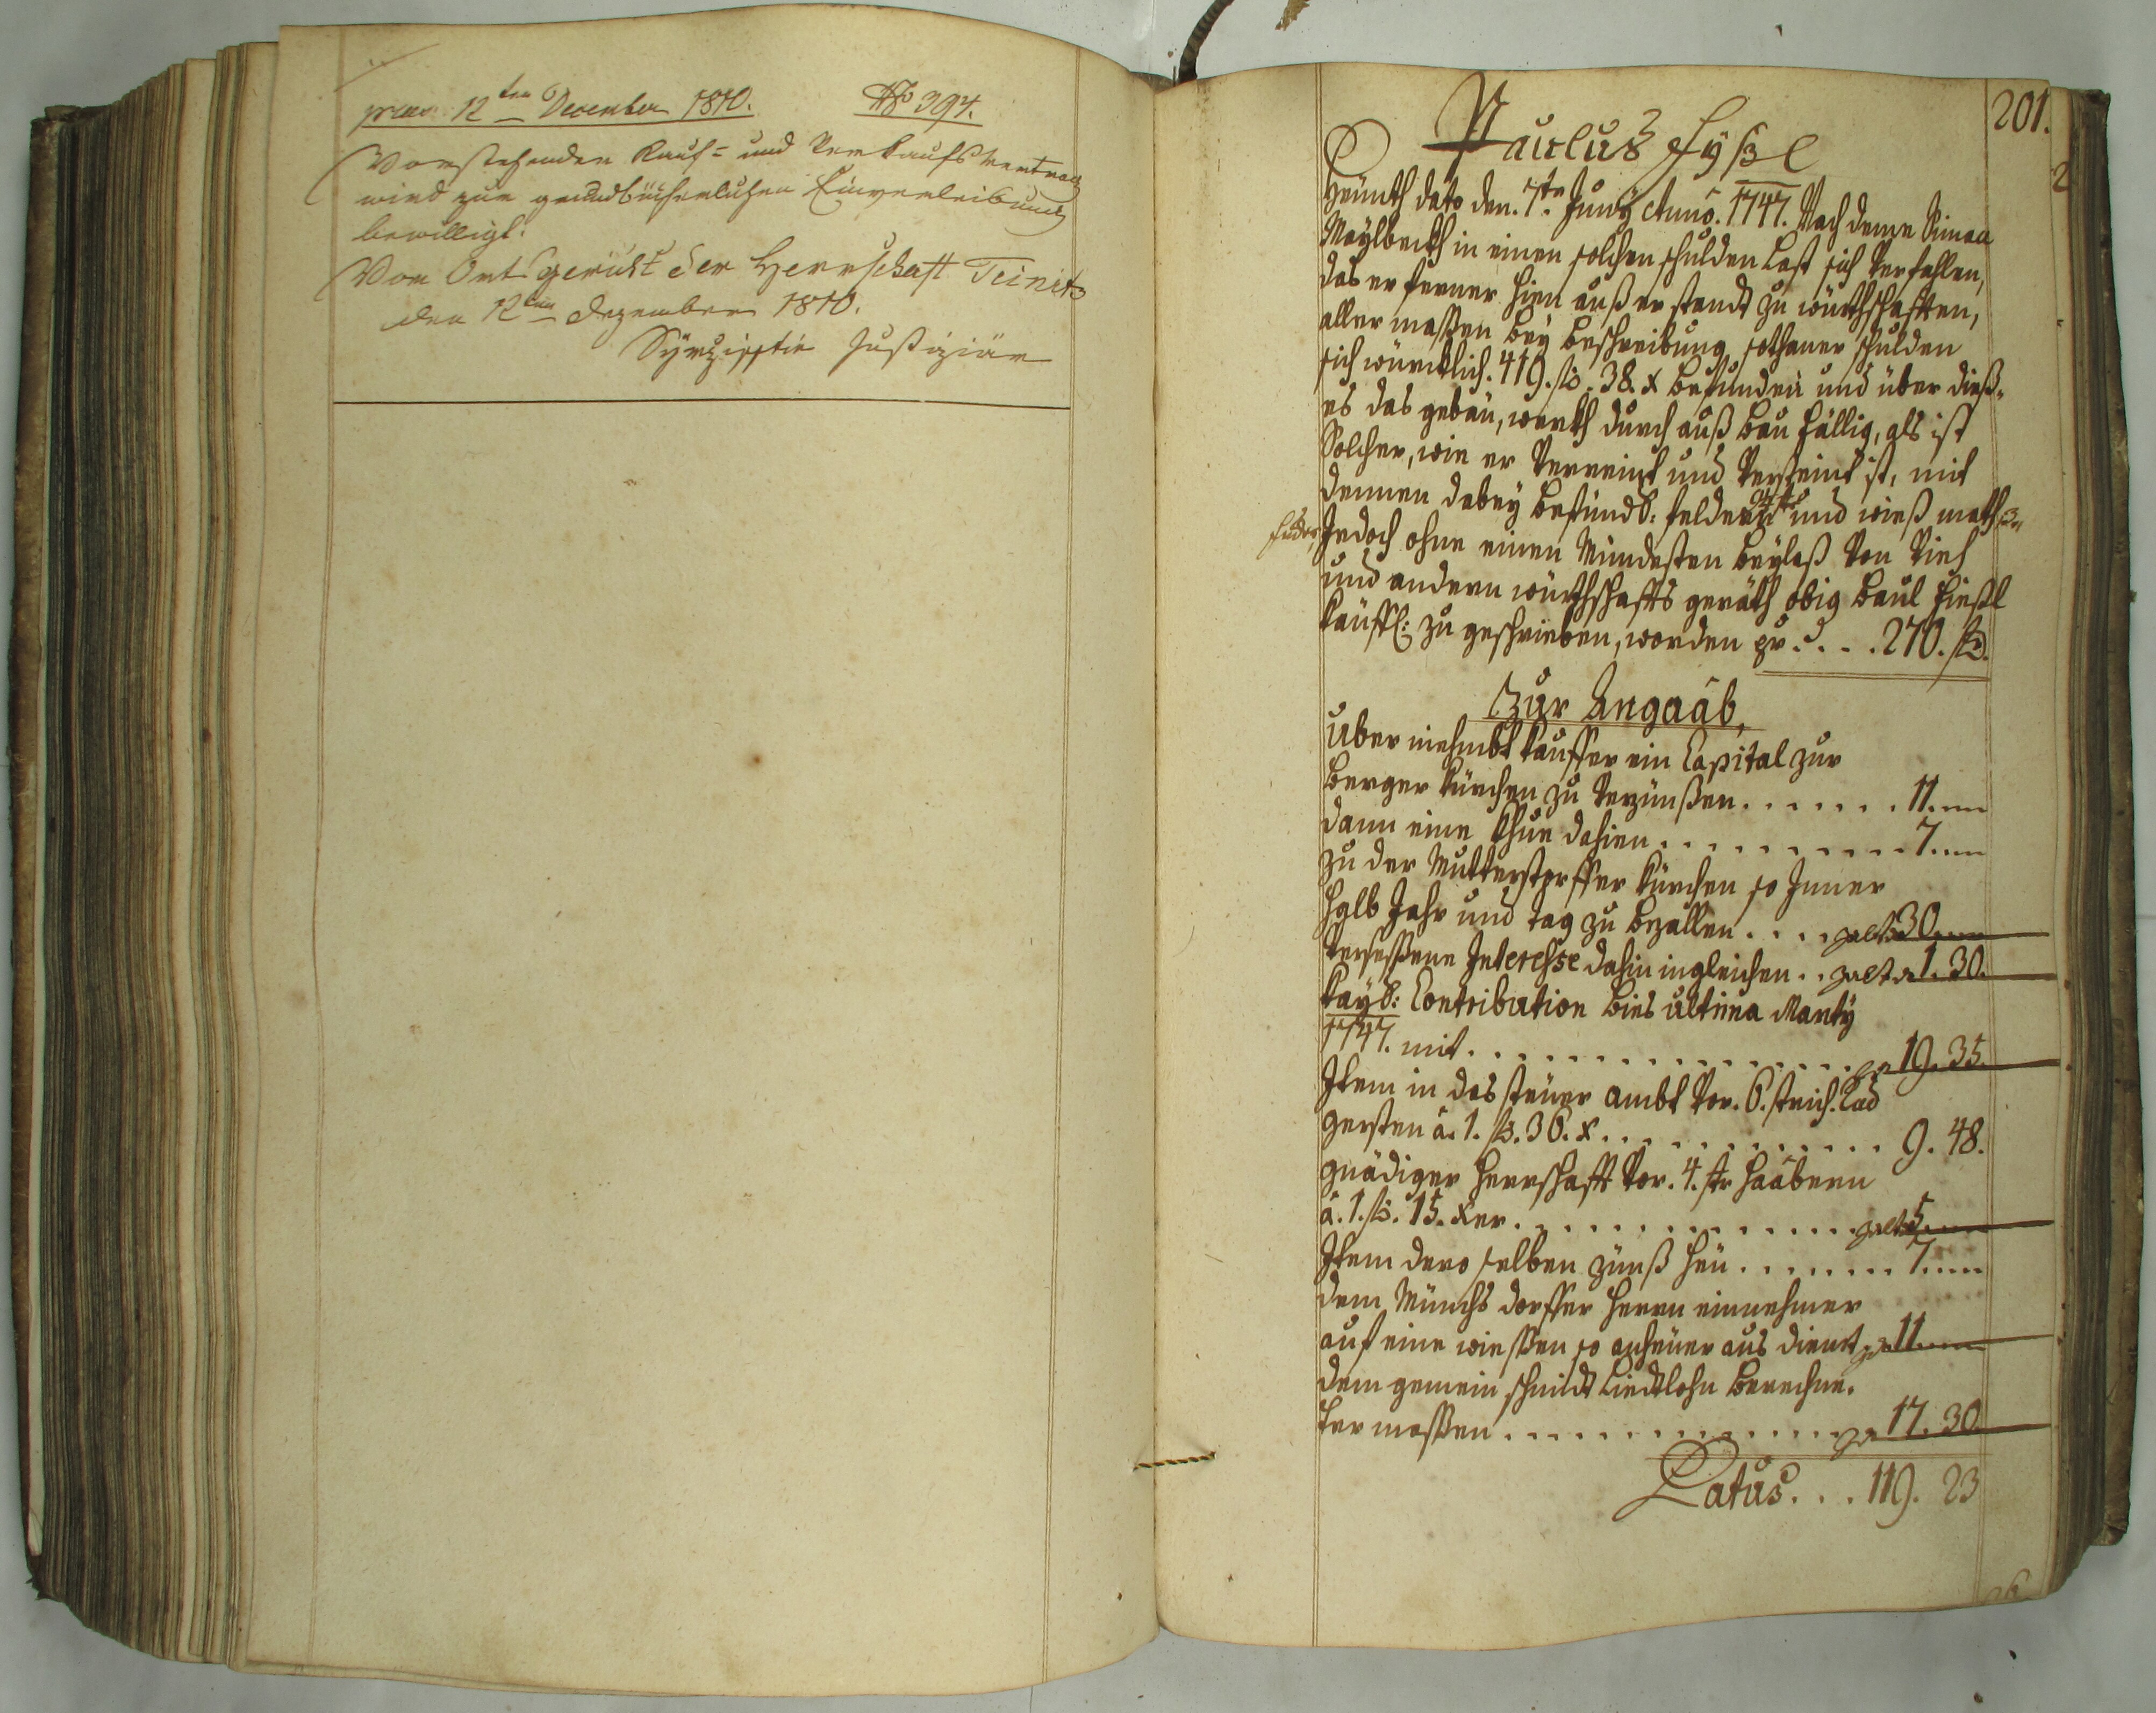 12ten December 1810. No 394.
Vorstehender Kauf- und Verkaufsvertrag
wird zur grundbücherlichen Einverleibung
bewilligt.
Von Ortsgericht der Herrschaft Teinitz
den 12ten Dezember 1810.
Justiziär
201.
Paulus Fyßl
Heünth dato den 7te Juny Anno. 1747. Nach deme Simon
Maylbeckh in einen solchen schulden Last sich Verfahlen,
das er ferner hien außer standt zu würthschafften,
aller maßen bey beschreibung sothaner schulden
sich würcklich. 419. fl. 38 x befunden und über dieß
es das gebäu, werkh durch auß bau fällig, als ist
Solcher, wie er Verreint und Versteint ist, mit
dennen dabey befündl: feldern und wieß math
Jedoch ohne einen Mündesten beylaß Von Vieh
und andern würthschaffts geräth obig Paul Fießl
käuffl: zu geschrieben, worden pr. . . . 270. fl.
Zur Angaab,
Über niehmbt kauffer ein Capital zur
Berger kürchen zu Verzünßen . . . . . . . 11.
dann eine Khue dahien . . . . . . . . . . 7.
zu der Mutterstorffer kürchen so Inner
halb Jahr und tag zu bezallen . . . . zalt 30
Verseßene Interesse dahin ingleichen . . zalt 1. 30.
Kayl: Contribution bies ultima Marty
1747. mit . . . . . . . . . . . . . . . . 19. 35.
Item in das steüer ambt Vor. 6. strich.
gersten à. 1. fl. 36. x . . . . . . . . . . . . . 9. 48.
gnädiger Herrschafft Vor. 4. str haabern
à. 1. fl. 15. xer. . . . . . . . . . . . . . . zalt 5
Item dero selben zünß heü . . . . . . . . 7.
dem Münchs dorffer Herrn einnehmer
auf eine wießen so anheüer aus dient 11
dem gemein schmidt Liedtlohn berechne.
ter maßen . . . . . . . . . . . . . . . . 17. 30.
Latus . . . 119. 23